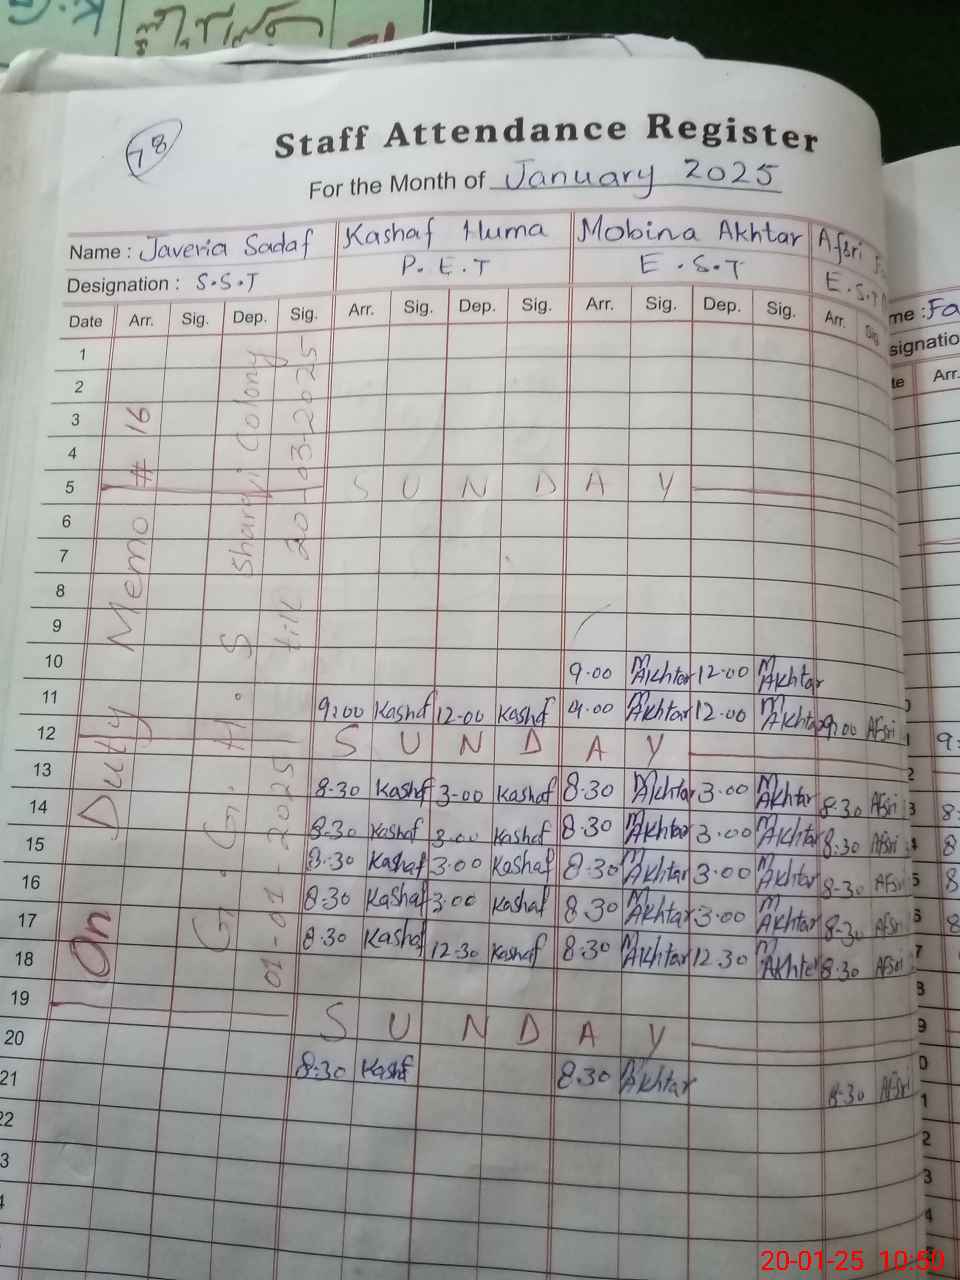 78
Staff Attendance Register
For the Month of January 2025
Name : Javeria Sadaf Kashaf Huma Mobina Akhtar Afsri
Designation : S.S.T P.E.T E.S.T E.S.T
me : Fa
signatio
Date Arr. Sig. Dep. Sig. Arr. Sig. Dep. Sig. Arr. Sig. Dep. Sig. Arr. Sig
te Arr.
1
2
3
4
5 S U N D A Y
6
7
8
9
10 9.00 M Akhtar 12.00 M Akhtar
11 9:00 Kashf 12-00 Kashf 9.00 M Akhtar 12.00 M Akhtar 9:00 AFsri
12 S U N D A Y
13 8-30 Kashf 3-00 Kashaf 8.30 M Akhtar 3.00 M Akhtar 8-30 AFsri
14 8-30 Kashaf 3.00 Kashaf 8.30 M Akhtar 3.00 M Akhtar 8-30 AFsri
15 8:30 Kashaf 3.00 Kashaf 8.30 M Akhtar 3.00 M Akhtar 8-30 AFsri
16 8:30 Kashaf 3.00 Kashaf 8.30 M Akhtar 3.00 M Akhtar 8-30 AFsri
17 8.30 Kashaf 12-30 Kashaf 8.30 M Akhtar 12.30 M Akhter 8.30 AFsri
18
19 S U N D A Y
20 8:30 Kashf 8.30 M Akhtar 8-30 AFsri
21
22
3
4
On Duty Memo # 16
G. G. H. S Sharqi Colony
01-01-2025 till 20-03-2025
20-01-25 10:50